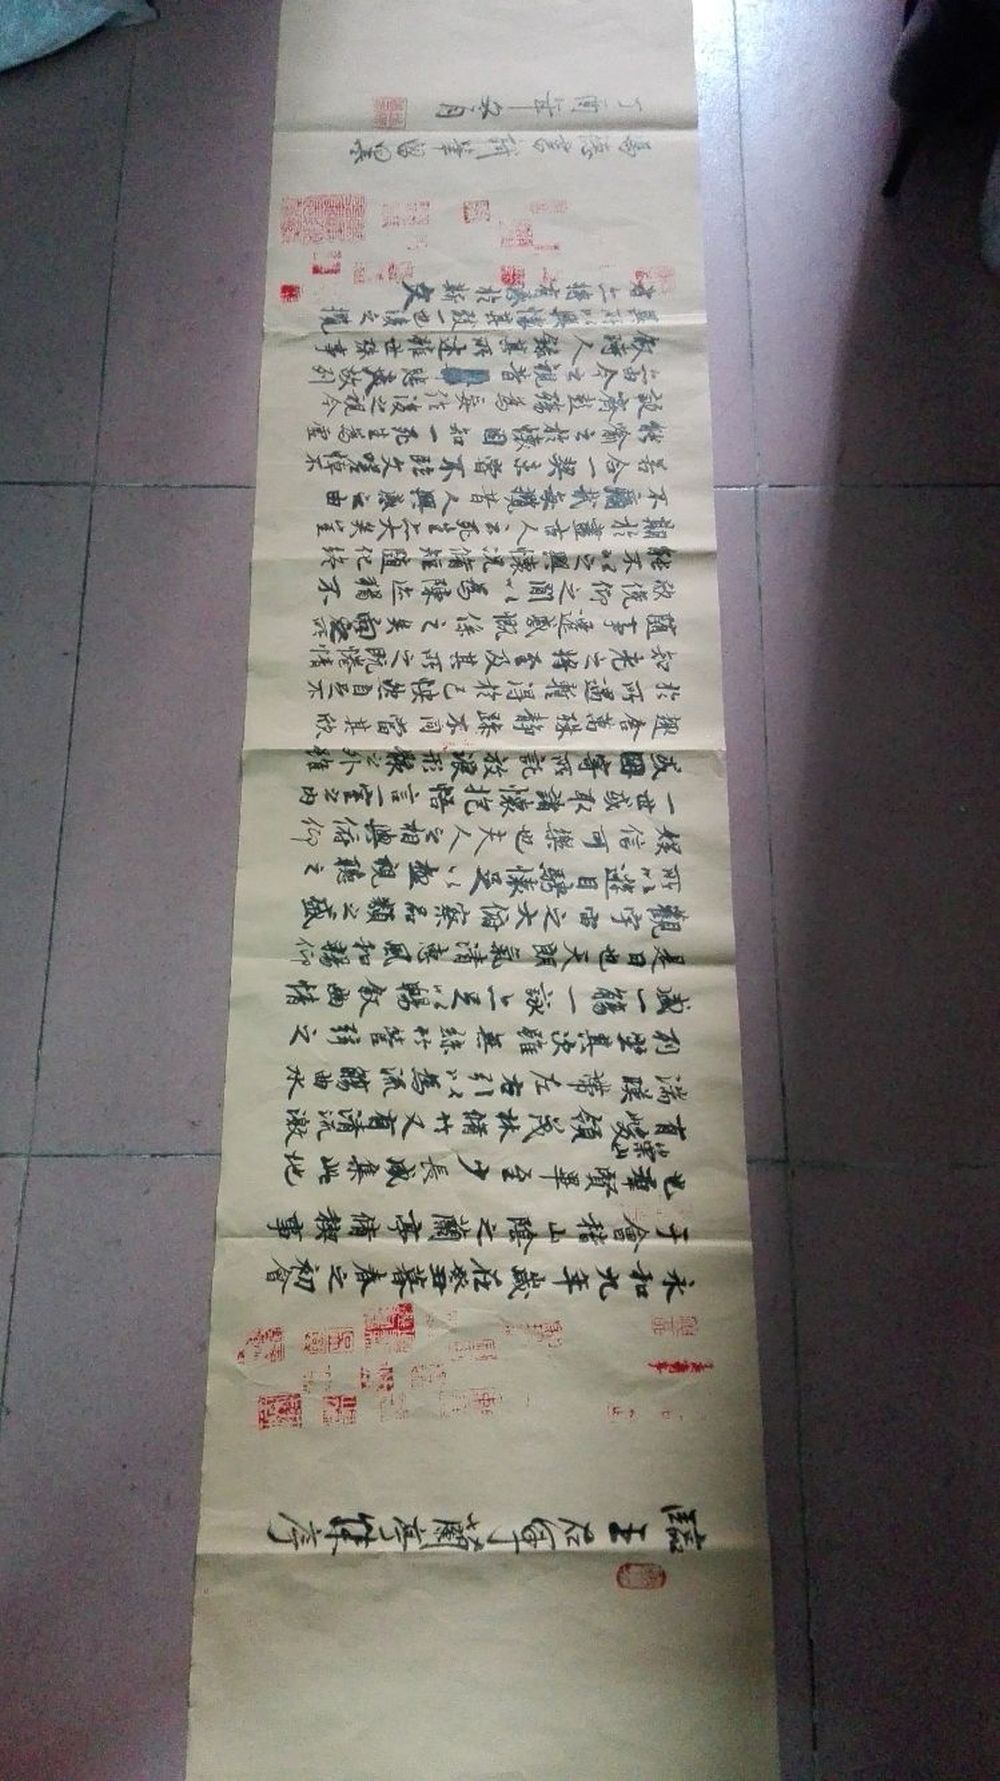 臨王右軍蘭亭集序
永和九年歲在癸丑暮春之初會
于會稽山陰之蘭亭脩稧事
也羣賢畢至少長咸集此地
有崇山峻領茂林脩竹又有清流激
湍暎帶左右引以為流觴曲水
列坐其次雖無絲竹管弦之
盛一觴一詠亦足以暢敘幽情
是日也天朗氣清惠風和暢仰
觀宇宙之大俯察品類之盛
所以遊目騁懷足以極視聽之
娛信可樂也夫人之相與俯仰
一世或取諸懷抱悟言一室之內
或因寄所託放浪形骸之外雖
趣舍萬殊靜躁不同當其欣
於所遇暫得於己怏然自足不
知老之將至及其所之既惓情
隨事遷感慨係之矣向之所
欣俛仰之閒以為陳迹猶不
能不以之興懷況脩短隨化終
期於盡古人云死生亦大矣豈
不痛哉每攬昔人興感之由
若合一契未嘗不臨文嗟悼不
能喻之於懷固知一死生為虛
誕齊彭殤為妄作後之視今
亦由今之視昔悲夫故列
敘時人錄其所述雖世殊事
異所以興懷其致一也後之攬
者亦將有感於斯文
丁酉年冬月